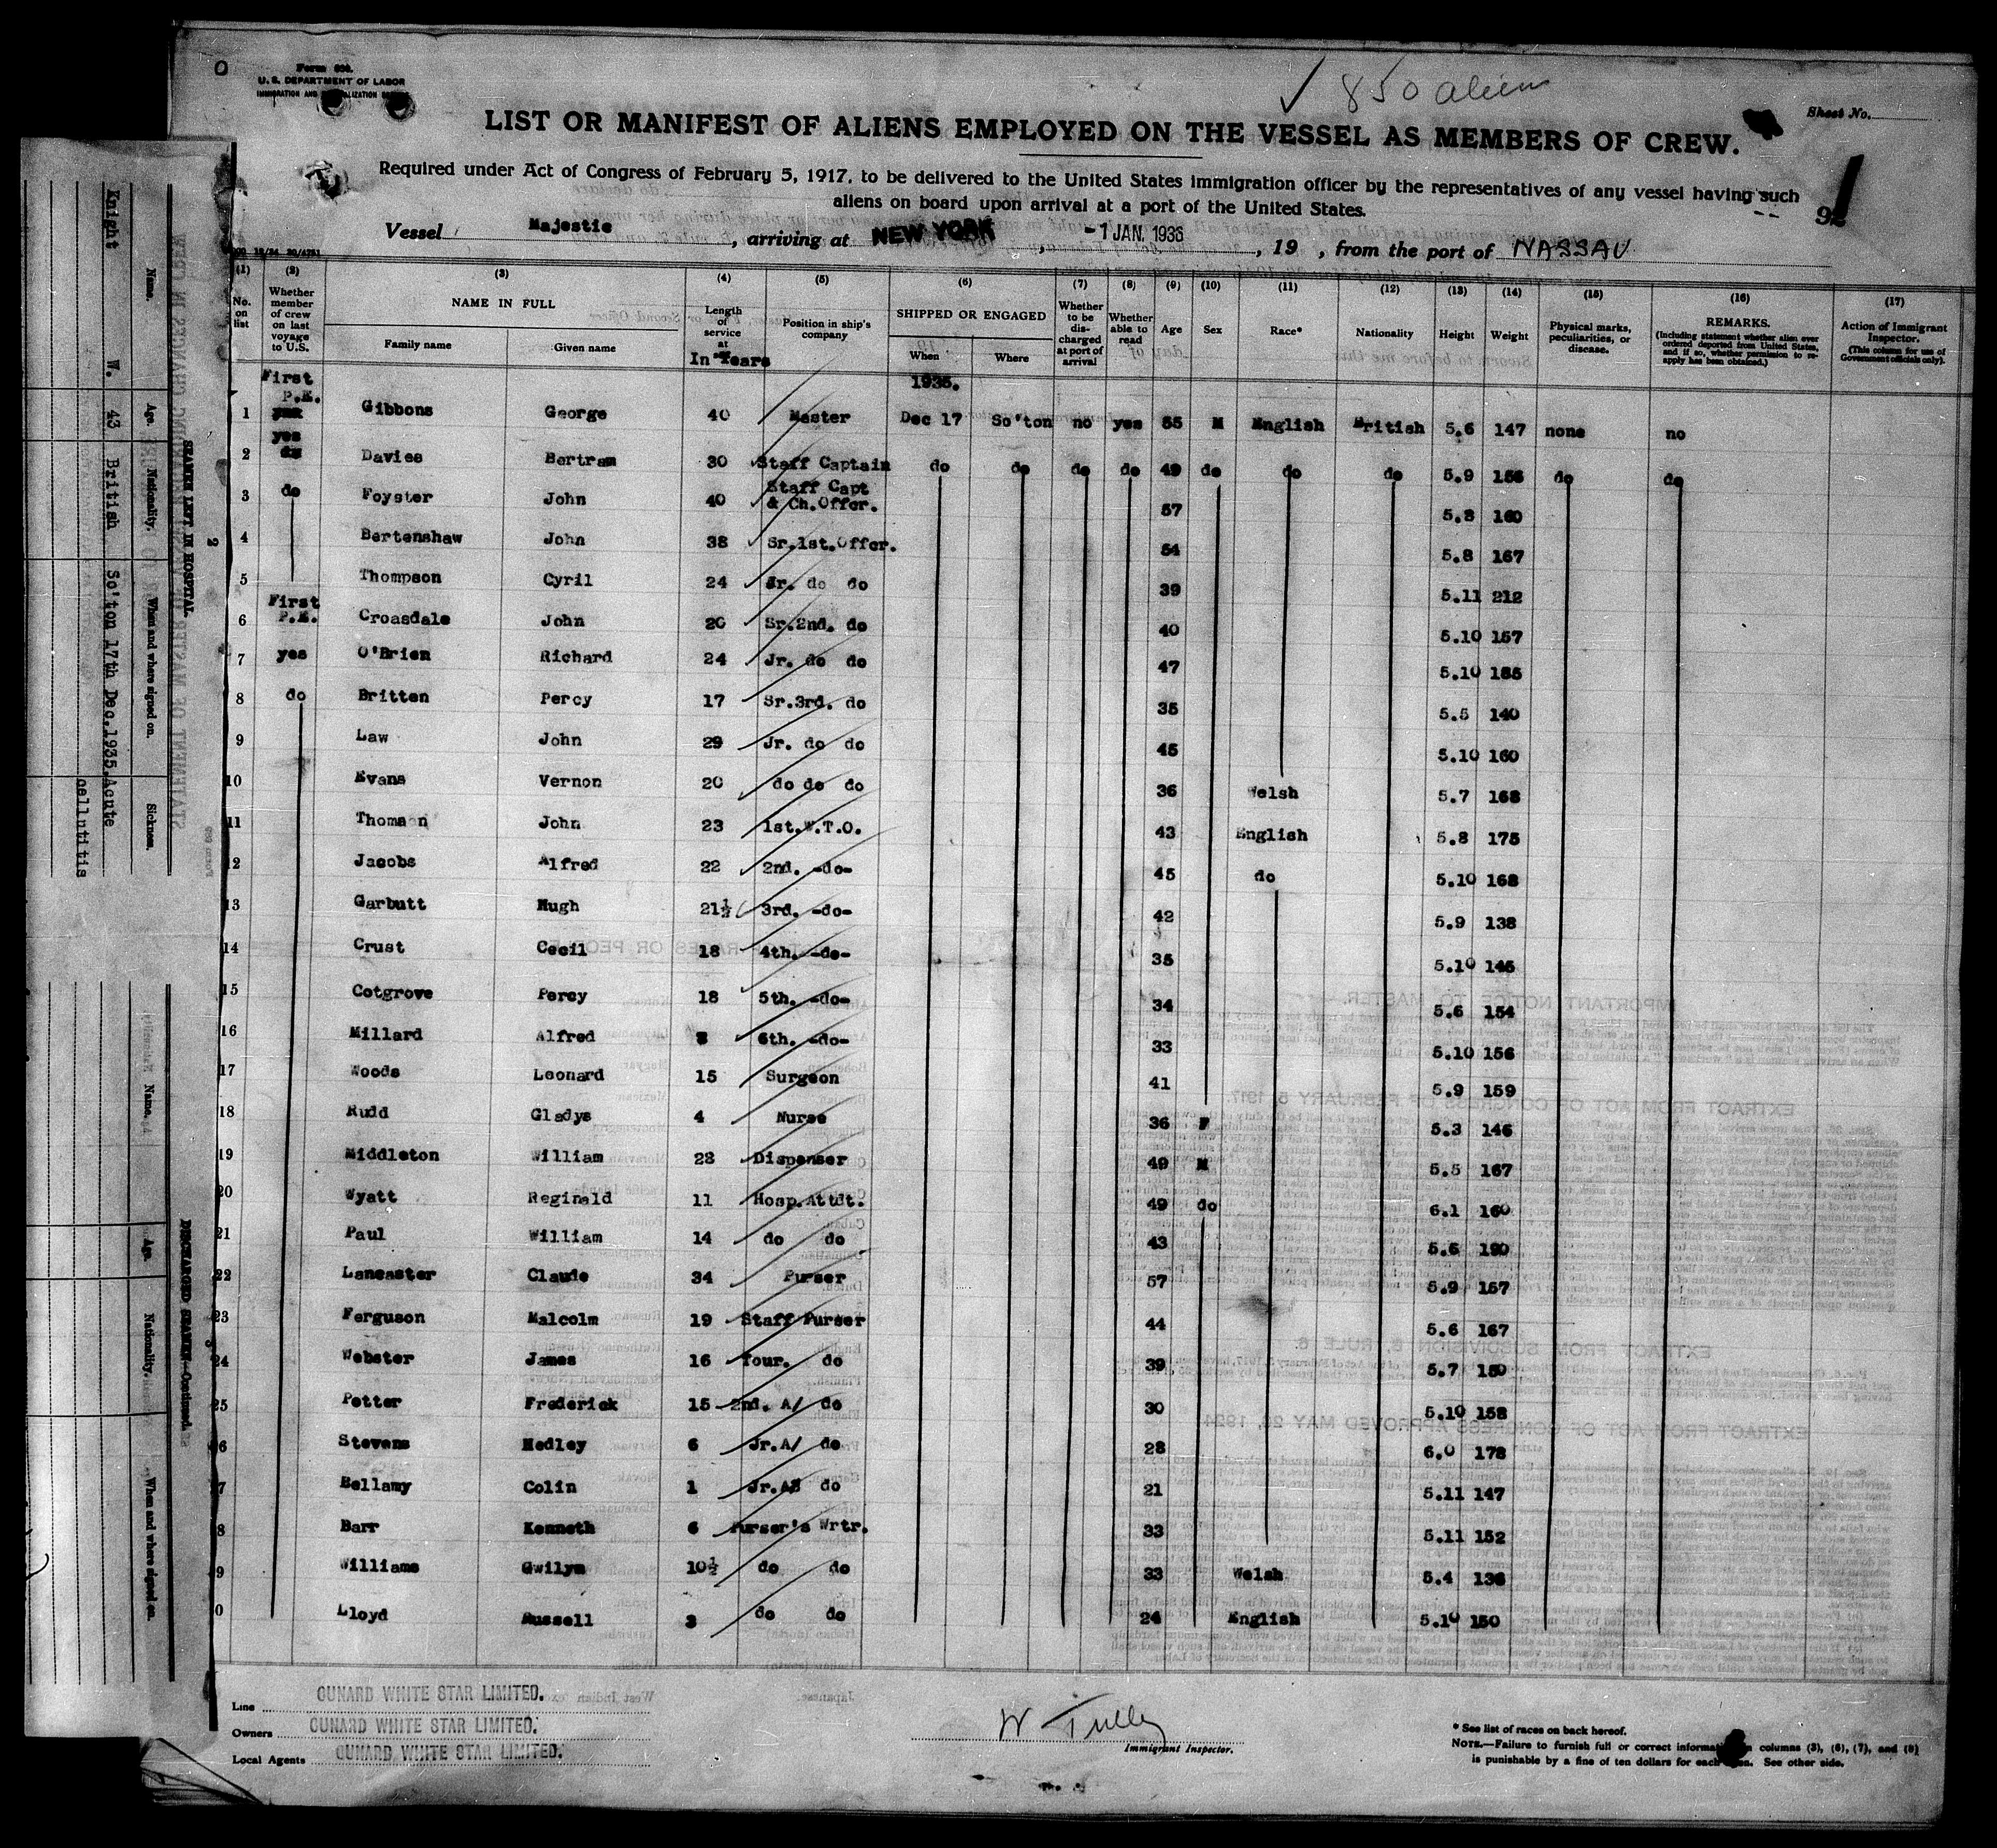 Form 808.
U. S. DEPARTMENT OF LABOR
✓ 850 aliens
Sheet No.
LIST OR MANIFEST OF ALIENS EMPLOYED ON THE VESSEL AS MEMBERS OF CREW.
Required under Act of Congress of February 5, 1917, to be delivered to the United States immigration officer by the representatives of any vessel having such
aliens on board upon arrival at a port of the United States.
Vessel Majestic, arriving at NEW YORK, -1 JAN. 1936, 19 , from the port of NASSAU
(1) (2) (3) (4) (5) (6) (7) (8) (9) (10) (11) (12) (13) (14) (15) (16) (17)
No. on list
Whether member of crew on last voyage to U.S.
NAME IN FULL
Family name
Given name
Length of service at
In Years
Position in ship's company
SHIPPED OR ENGAGED
When
Where
Whether to be discharged at port of arrival
Whether able to read
Age
Sex
Race*
Nationality
Height
Weight
Physical marks, peculiarities, or disease.
REMARKS.
(Including statement whether alien ever ordered deported from United States, and if so, whether permission to reapply has been obtained.)
Action of Immigrant Inspector.
(This column for use of Government officials only).
First P.E. 1935.
1 yes Gibbons George 40 Master Dec 17 So'ton no yes 55 M English British 5.6 147 none no
2 yes Davies Bertram 30 Staff Captain do do do do 49 do do do 5.9 156 do do
3 do Foyster John 40 Staff Capt & Ch.Offcr. 57 5.8 160
4 Bertenshaw John 38 Sr.1st.Offcr. 54 5.8 167
5 Thompson Cyril 24 Jr. do do 39 5.11 212
6 First P.E. Croasdale John 20 Sr.2nd. do 40 5.10 157
7 yes O'Brien Richard 24 Jr. do do 47 5.10 185
8 do Britten Percy 17 Sr.3rd. do 35 5.5 140
9 Law John 29 Jr. do do 45 5.10 160
10 Evans Vernon 20 do do do 36 Welsh 5.7 168
11 Thomson John 23 1st.W.T.O. 43 English 5.8 175
12 Jacobs Alfred 22 2nd. -do- 45 do 5.10 168
13 Garbutt Hugh 21½ 3rd. -do- 42 5.9 138
14 Crust Cecil 18 4th. -do- 35 5.10 145
15 Cotgrove Percy 18 5th. -do- 34 5.6 154
16 Millard Alfred 6th. -do- 33 5.10 156
17 Woods Leonard 15 Surgeon 41 5.9 159
18 Rudd Gladys 4 Nurse 36 F 5.3 146
19 Middleton William 23 Dispenser 49 M 5.5 167
20 Wyatt Reginald 11 Hosp.Attdt. 49 do 6.1 160
21 Paul William 14 do do 43 5.6 190
22 Lancaster Claude 34 Purser 57 5.9 157
23 Ferguson Malcolm 19 Staff Purser 44 5.6 167
24 Webster James 16 Tour. do 39 5.7 150
25 Potter Frederick 15 2nd. A/ do 30 5.10 158
6 Stevens Hedley 6 Jr.A/ do 28 6.0 178
7 Bellamy Colin 1 Jr.AS do 21 5.11 147
8 Barr Kenneth 6 Purser's Wrtr. 33 5.11 152
9 Williams Gwilym 10½ do do 33 Welsh 5.4 136
0 Lloyd Russell 3 do do 24 English 5.10 150
Line CUNARD WHITE STAR LIMITED.
Owners CUNARD WHITE STAR LIMITED.
Local Agents CUNARD WHITE STAR LIMITED.
W Tulley
Immigrant Inspector.
* See list of races on back hereof.
NOTE.—Failure to furnish full or correct information in columns (3), (6), (7), and (8)
is punishable by a fine of ten dollars for each alien. See other side.
SEAMEN LEFT IN HOSPITAL
Name. Age. Nationality. When and where signed on. Sickness.
Knight W. 43 British So'ton 17th Dec.1935. Acute
cellulitis
DISCHARGED SEAMEN—Continued.
Name. Age. Nationality. When and where signed on.